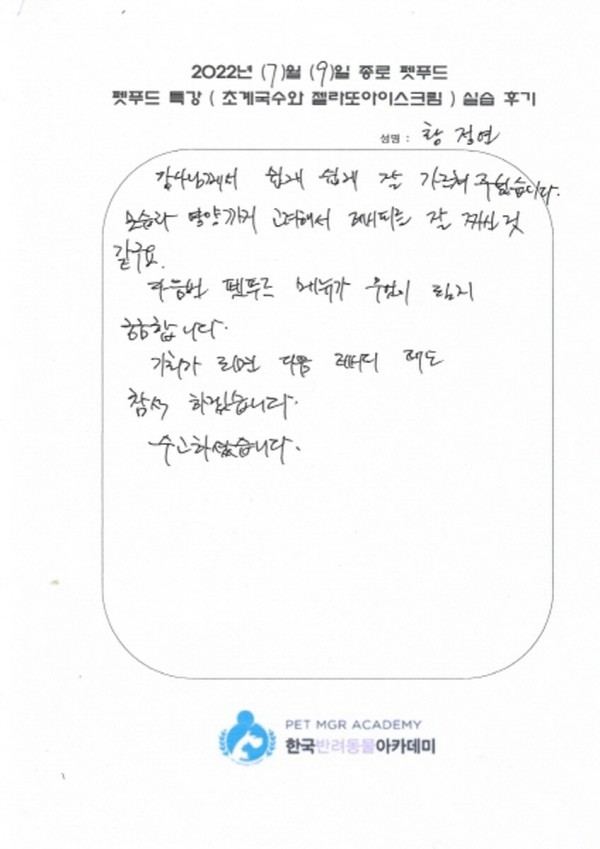 2022년 (7)월 (9)일 종로 펫푸드
펫푸드 특강 ( 초계국수와 젤라또아이스크림 ) 실습 후기
성명 : 황 정연
강사님께서 쉽게 쉽게 잘 가르쳐 주셨습니다.
모습과 영양까지 고려해서 레시피를 잘 짜신 것
같구요.
다음번 펫푸드 메뉴가 무엇이 될지
궁금합니다.
기회가 되면 다음 레시피 때도
참석 하겠습니다.
수고하셨습니다.
PET MGR ACADEMY
한국반려동물아카데미